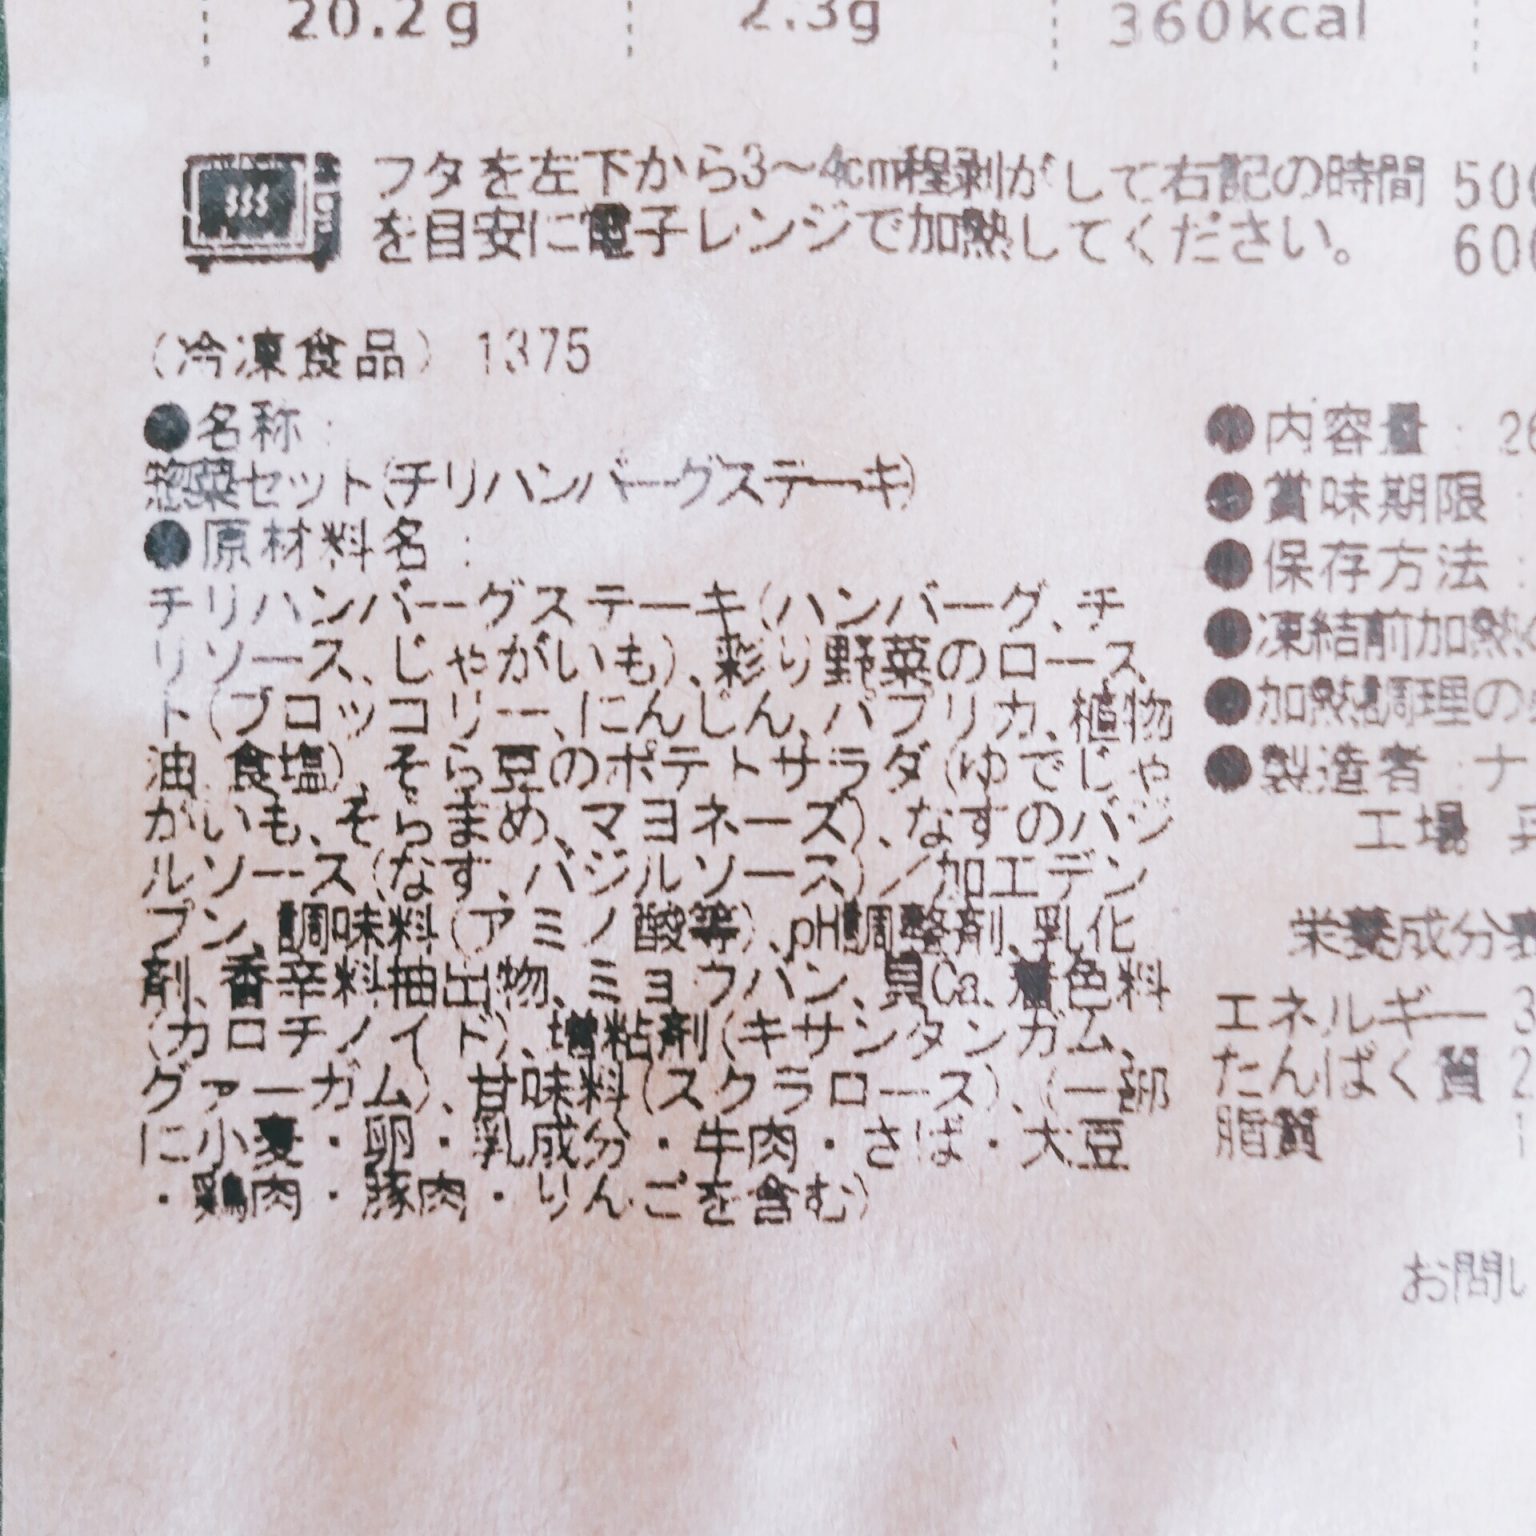 20.2g 2.3g 360kcal
フタを左下から3〜4cm程剥がして右記の時間 500
を目安に電子レンジで加熱してください。 600
(冷凍食品) 1375
●名称:
惣菜セット(チリハンバーグステーキ)
●原材料名:
チリハンバーグステーキ(ハンバーグ、チ
リソース、じゃがいも)、彩り野菜のロース
ト(ブロッコリー、にんじん、パプリカ、植物
油、食塩)、そら豆のポテトサラダ(ゆでじゃ
がいも、そらまめ、マヨネーズ)、なすのバジ
ルソース(なす、バジルソース)/加工デン
プン、調味料(アミノ酸等)、pH調整剤、乳化
剤、香辛料抽出物、ミョウバン、貝Ca、着色料
(カロチノイド)、増粘剤(キサンタンガム、
グァーガム)、甘味料(スクラロース)、(一部
に小麦・卵・乳成分・牛肉・さば・大豆
・鶏肉・豚肉・りんごを含む)
●内容量:26
●賞味期限:
●保存方法:
●凍結前加熱の
●加熱調理の
●製造者:ナ
工場
栄養成分表
エネルギー 3
たんぱく質 2
脂質 1
お問い